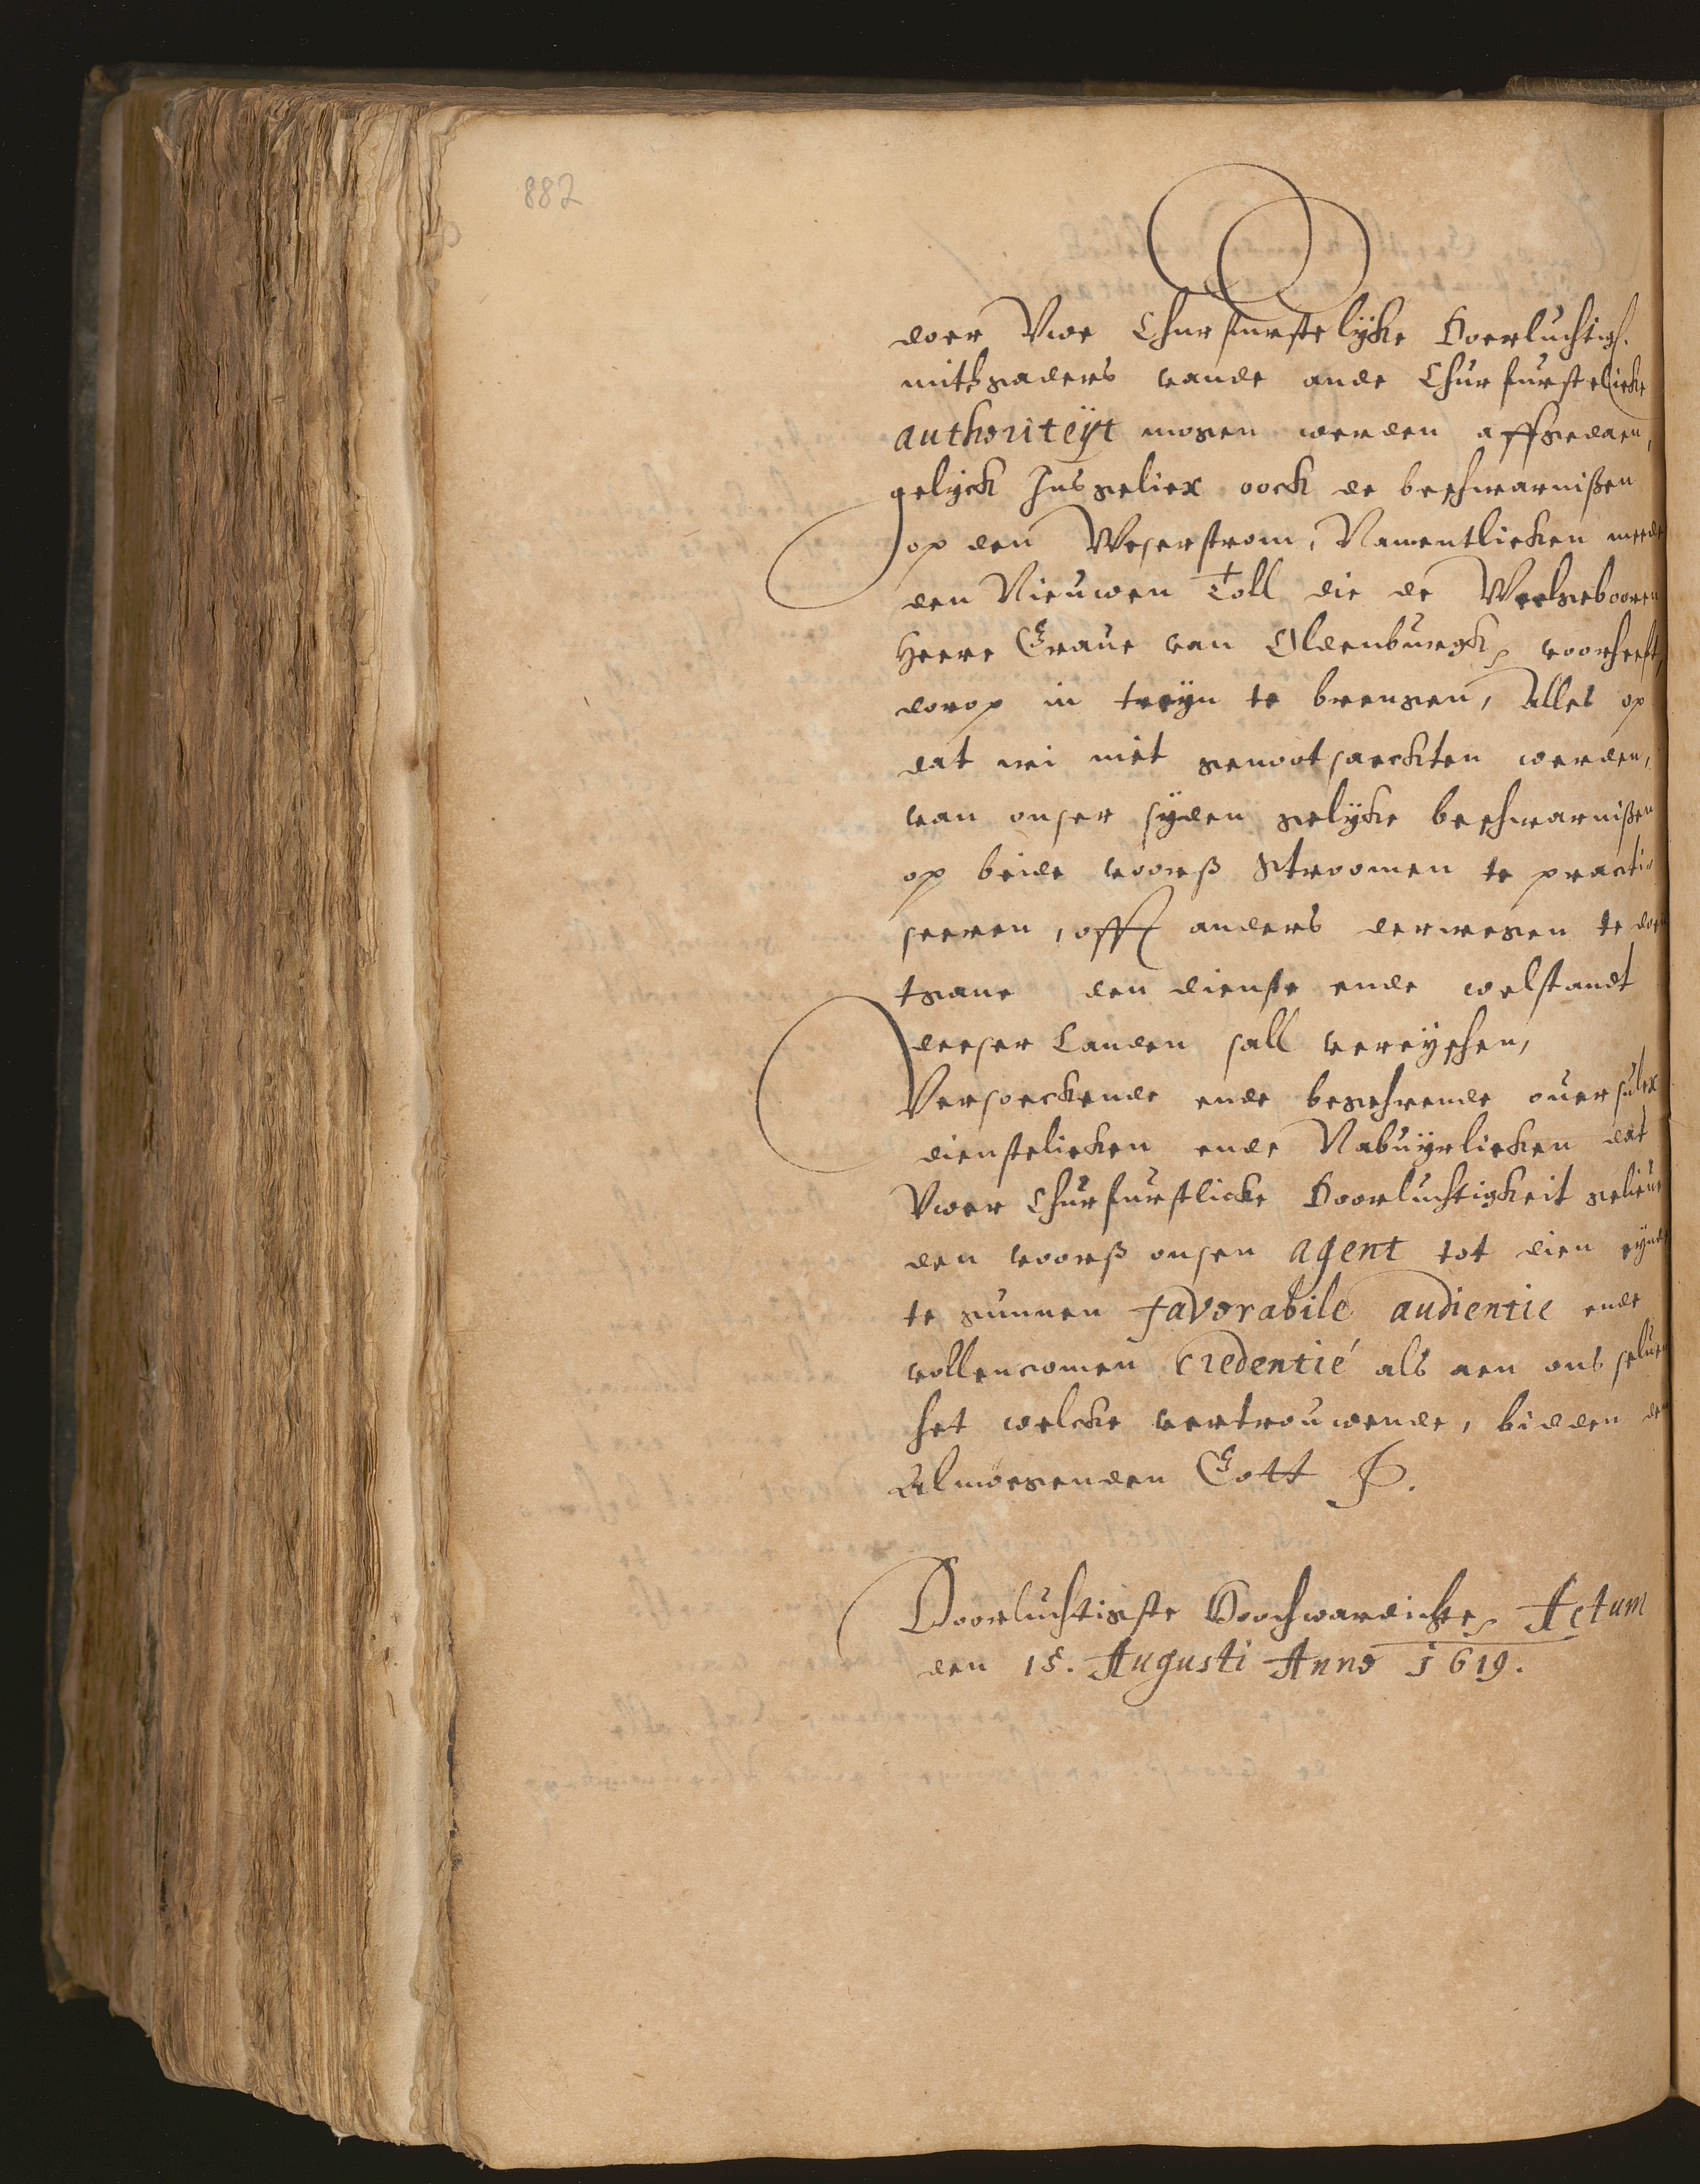 882
doer Vwe Churfurstelijcke Doerluchtigh.
mithsgaders vande ande Churfurstelicke
authoriteÿt mogen werden affgedaen,
gelÿck Jnsgeliex oock de beschwarnißen
op den Weserstrom, Namentlicken mede
den Nieuwen Toll die de Welgebooren
Heere Graue van Oldenburgk voorheeft,
dorop in treÿn te brengen, Alles op
dat wi niet genootsaeckten werden,
van onser sÿden gelÿcke beschwarnißen
op beide voorß Stroomen te practi„
seeren, off anders derwegen te doen
tgane den dienste ende welstandt
deeser Landen sall vereÿschen,
Versoeckende ende begehrende ouersulx
dienstelicken ende Nabuÿrlicken dat
Vwer Churfurstlicke Doorluchtigkeit gelieue
den voorß onsen agent tot dien eÿnde
te gunnen favorabile audientie ende
vollencomen Credentié als aen ons seluen
het welcke vertrouwende, bidden den
Almoegenden Gott
Doorluchtigste Hoochwardichste Actum
den 15. Augusti Anno 1619.